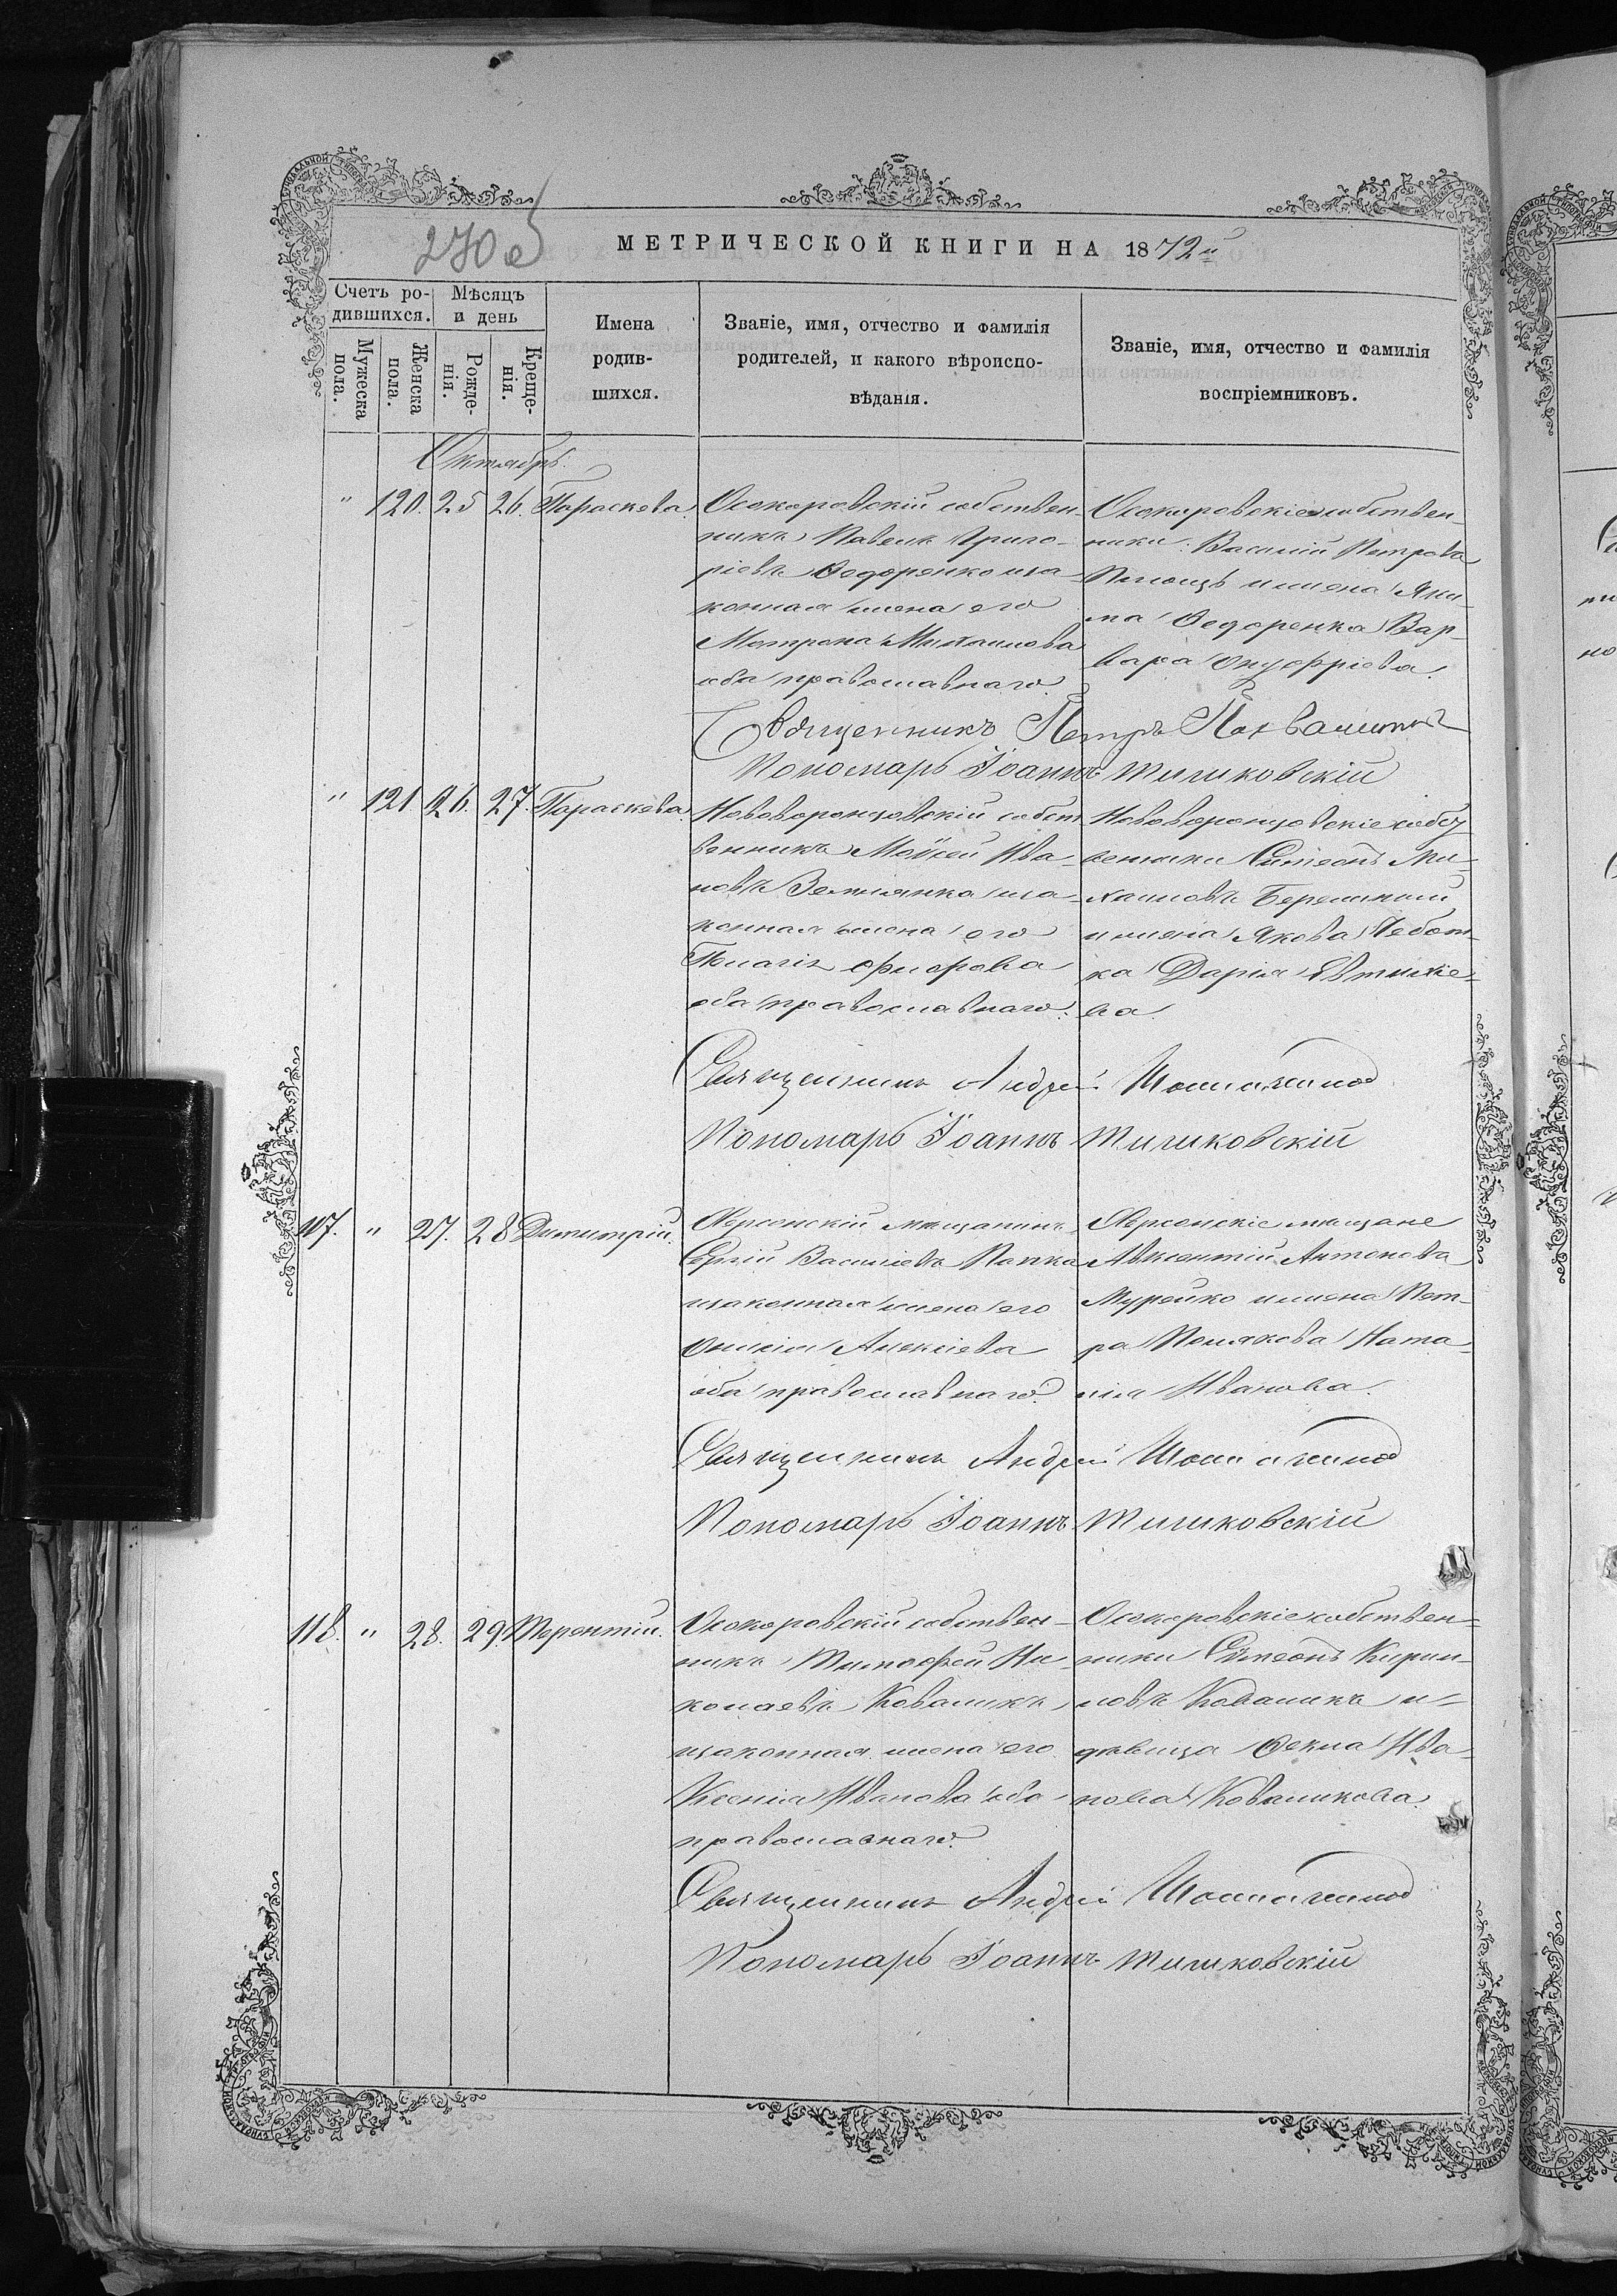 270 об
МЕТРИЧЕСКОЙ КНИГИ НА 1872й
Счетъ ро-
дившихся.
Мѣсяцъ
и день
Мужеска
пола.
Женска
пола.
Рожде-
нія.
Креще-
нія.
Имена
родив-
шихся.
Званіе, имя, отчество и фамилія
родителей, и какого вѣроиспо-
вѣданія.
Званіе, имя, отчество и фамилія
воспріемниковъ.
Октябрь.
" 120. 25 26. Параскева.
Осокоровскій собствен-
никъ Павелъ Григо-
ріевъ Ѳедоренко и за-
конная жена его
Матрона Михаилова
оба православнаго.
Осокоровскіе собствен-
ники: Василій Петровъ
и жена Яки-
ма Ѳедоренка Вар-
вара Онуфріева.
Священникъ Петръ Похвалитый
Пономарь Іоаннъ Тишковскій
" 121. 26. 27. Параскева.
Нововоронцовскій собст
венникъ Моѵсей Ива-
новъ Землянко и за-
конная жена его
оба православнаго.
Нововоронцовскіе собст
венники Сѵмеонъ Ми-
хаиловъ
и жена Якова Чебот-
ка Дарія Евтихіе-
ва.
Священникъ Андрей
Пономарь Іоаннъ Тишковскій
117. " 27. 28 Димитрій.
Херсонскій мѣщанинъ
Сергій Василіевъ Папка
и законная жена его
Алексіева
оба православнаго.
Херсонскіе мѣщане
Авксентій Антоновъ
Мурейко и жена Пет-
ра Полякова Ната-
лія Иванова.
Священникъ Андрей
Пономарь Іоаннъ Тишковскій
118. " 28. 29. Терентій.
Осокоровскій собствен-
никъ Тимоѳей Ни-
колаевъ Коваликъ
и законная жена его
Ксенія Иванова оба
православнаго.
Осокоровскіе собствен-
ники Сѵмеонъ Кирил-
ловъ Коваликъ и
дѣвица Ѳекла Ива-
нова Коваликова.
Священникъ Андрей
Пономарь Іоаннъ Тишковскій